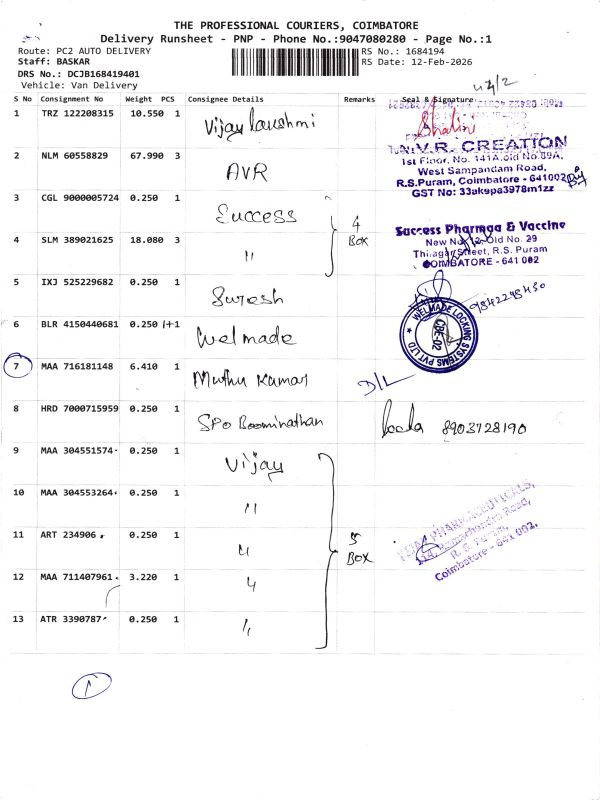 THE PROFESSIONAL COURIERS, COIMBATORE
Delivery Runsheet - PNP - Phone No.:9047080280 - Page No.:1
Route: PC2 AUTO DELIVERY
RS No.: 1684194
Staff: BASKAR
RS Date: 12-Feb-2026
DRS No.: DCJB168419401
Vehicle: Van Delivery
S No Consignment No Weight PCS Consignee Details Remarks Seal & Signature
1 TRZ 122208315 10.550 1 Vijay Laushmi
Shalini
N.V.R. CREATION
1st Floor, No. 141A,old No.89A,
West Sampandam Road,
R.S.Puram, Coimbatore - 641002
GST No: 33akepa3978m1zz
2 NLM 60558829 67.990 3 AVR
3 CGL 9000005724 0.250 1 Success
4 Box
4 SLM 389021625 18.080 3 "
Success Pharmaa & Vaccine
Old No. 29
Street, R.S. Puram
COIMBATORE - 641 002
5 IXJ 525229682 0.250 1 Suresh
9842298450
6 BLR 4150440681 0.250 1+1 Welmade
WELMADE LOCKING SYSTEMS PVT LTD
CBE-02
7 MAA 716181148 6.410 1 Muthu Kumar D/L
8 HRD 7000715959 0.250 1 SPO Boominathan 8903728190
9 MAA 304551574 0.250 1 Vijay
10 MAA 304553264 0.250 1 "
11 ART 234906 0.250 1 "
5 Box
PHARMACEUTICALS,
Ramachandra Road,
R. S. Puram,
Coimbatore - 641 002.
12 MAA 711407961 3.220 1 "
13 ATR 3390787 0.250 1 "
1